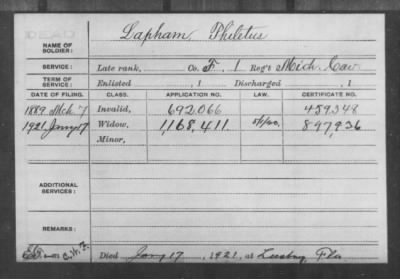 NAME OF SOLDIER: Lapham, Philetus
SERVICE: Late rank, Co. F, 1 Reg't Mich. Cav.
TERM OF SERVICE: Enlisted , 1 Discharged , 1
DATE OF FILING. CLASS. APPLICATION NO. LAW. CERTIFICATE NO.
1889 Mch 7 Invalid, 692.066 459.348
1921, Jany 17 Widow, 1,168,411. 897,936
Minor,
ADDITIONAL SERVICES:
REMARKS:
C.W.F.
Died Jany 17, 1921, at Fla